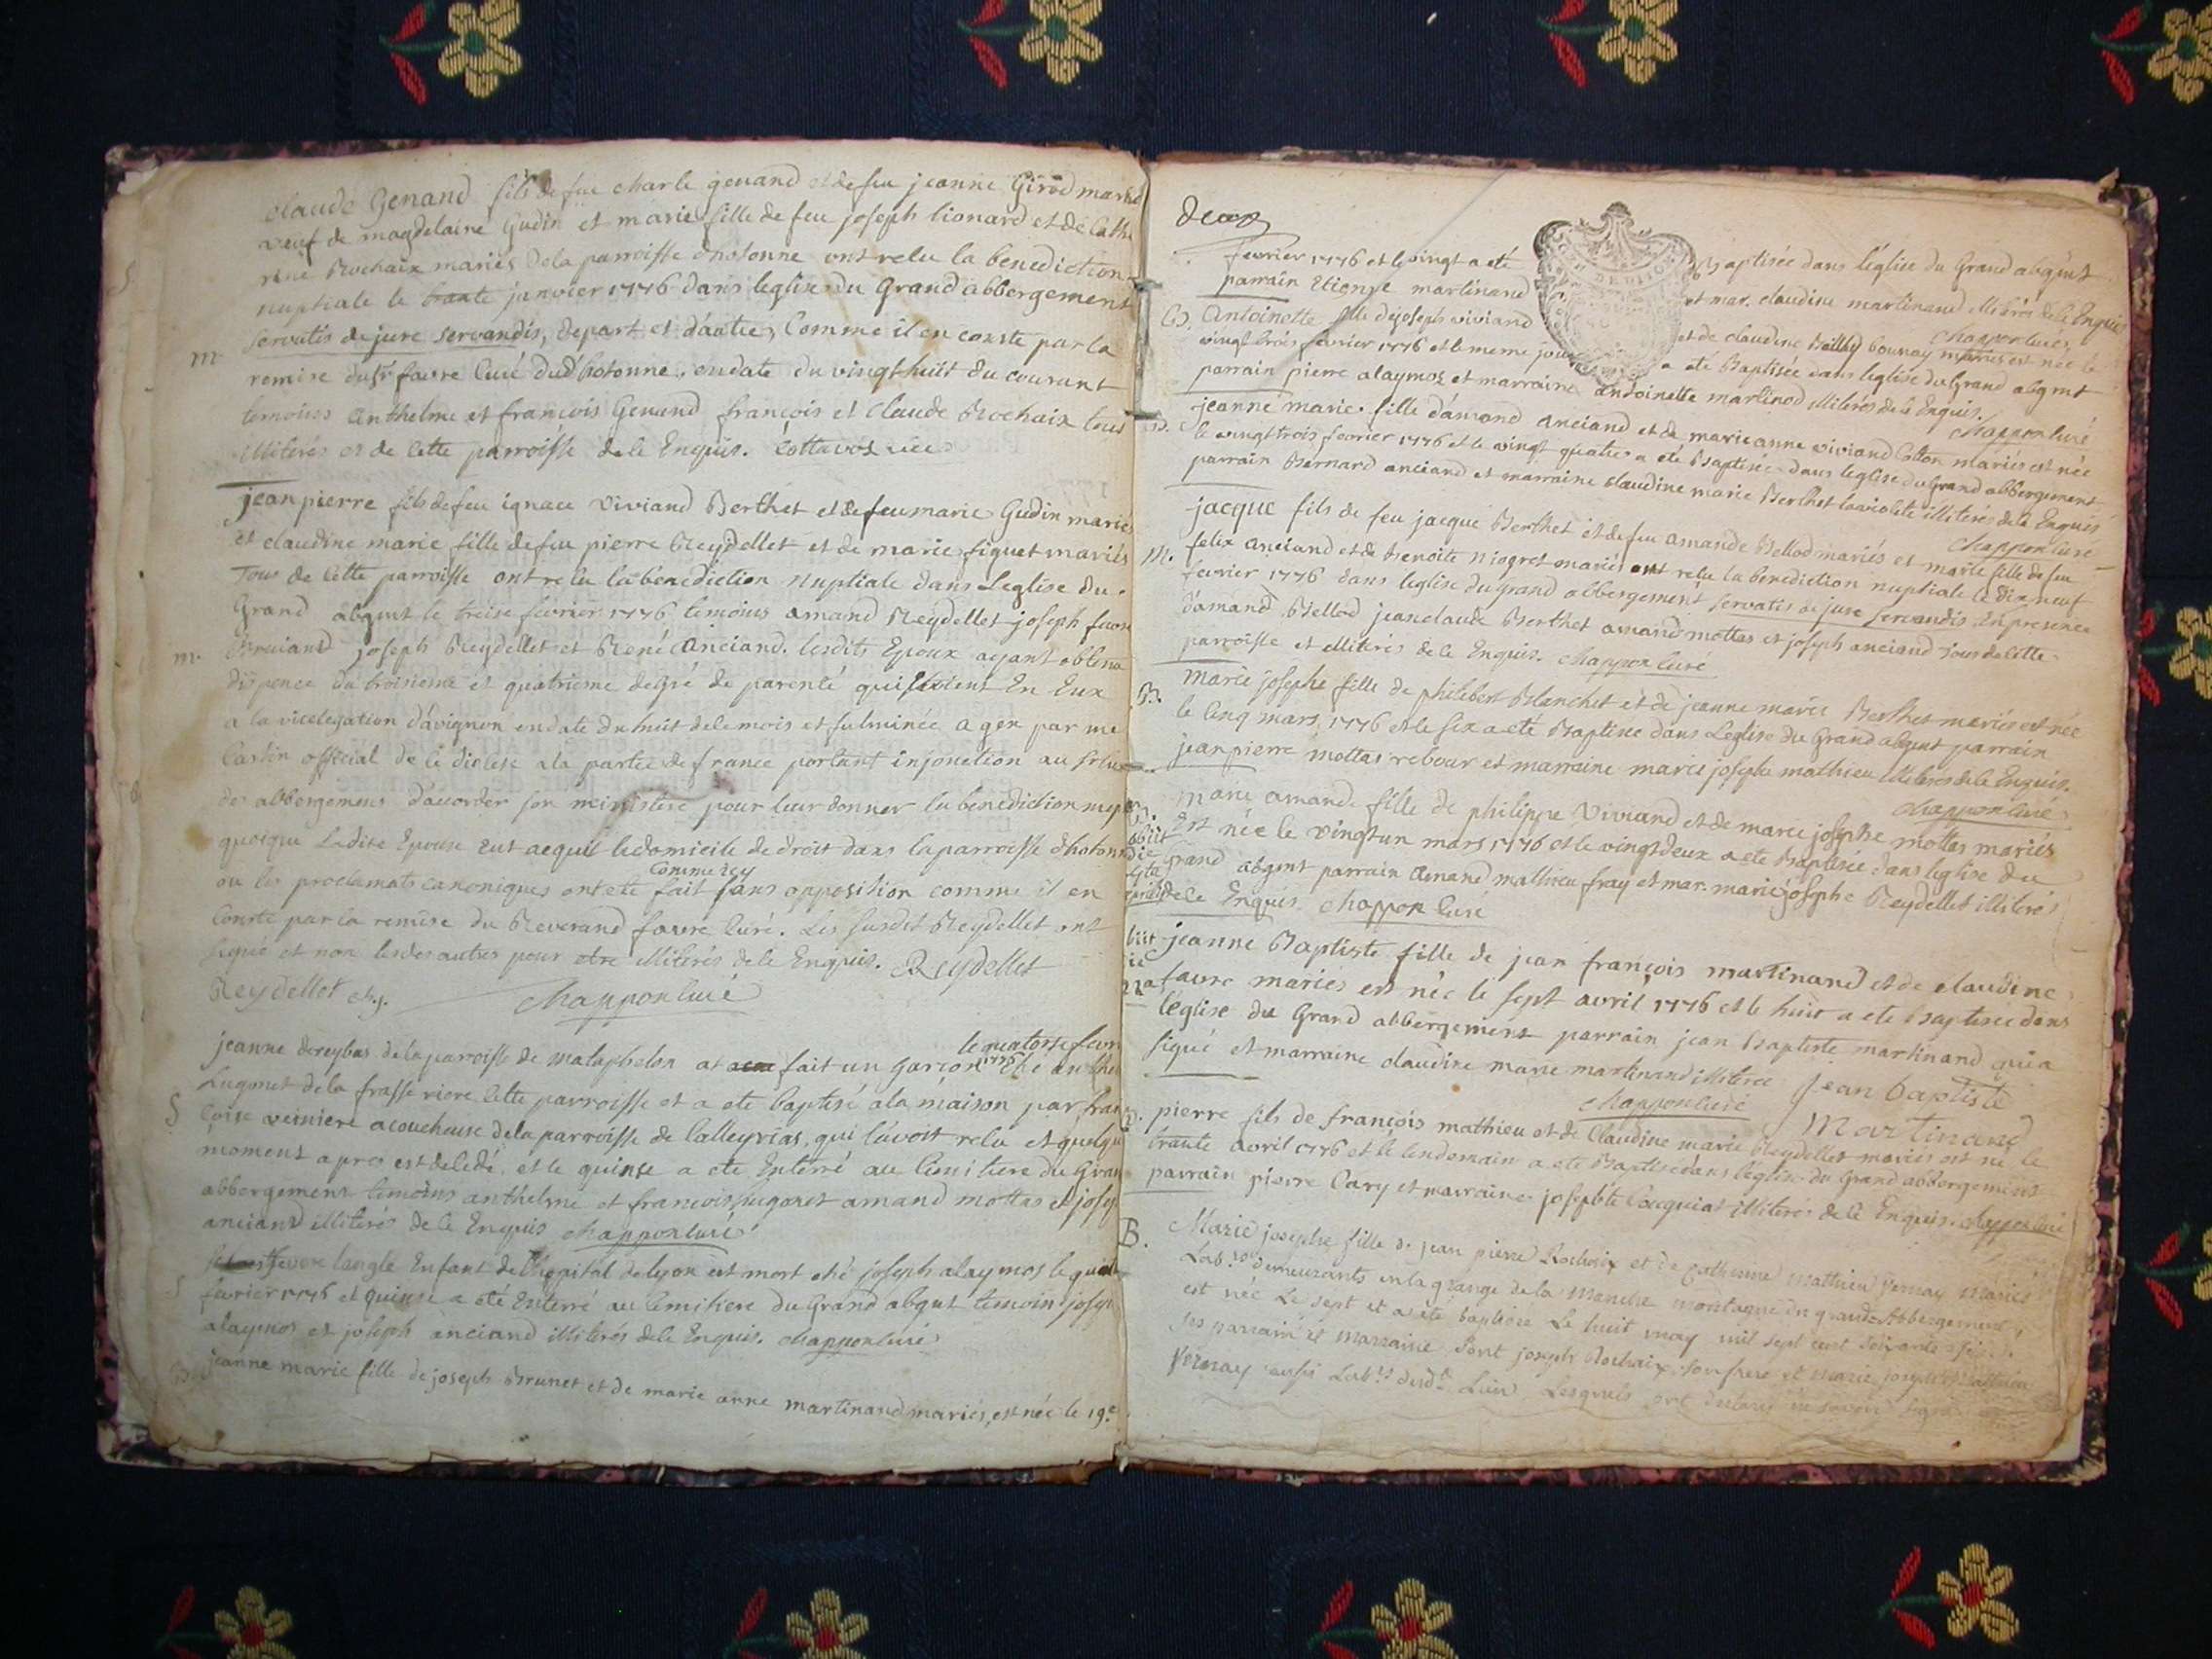 claude Genand fils de feu charle genand et de feu jeanne Girod mariés
veuf de magdelaine Gudin et marie fille de feu joseph lionard et de Cathe
rine Rochaix mariés de la parroisse dhotonne ont relu la benediction
nuptiale le trante janvier 1776 dans leglise du Grand abbergement
m. servatis de jure servandis, depart et d'autre, Comme il en conste par la
remise du sr favre Curé dud hotonne, en date du vingt huit du courant
temoins anthelme et françois Genand françois et claude Rochaix tous
illiterés et de Cette parroisse de le Enquis.
jean pierre fils de feu ignace Viviand Berthet et de feu marie Gudin mariés
et claudine marie fille de feu pierre Reydellet et de marie figuet mariés
Tous de Cette parroisse ont relu la benediction nuptiale dans Leglise du
Grand abgmt le treise fevrier 1776 temoins amand Reydellet joseph favre
m. joseph Reydellet et René anciand. lesdits Epoux ayant obtenu
dispence du troisieme et quatrieme degré de parenté qui En Eux
a la vicelegation d'avignon en date du huit de le mois et fulminée a gex par me
Castin official de Ce diocese a la partie de france portant injonction au sr Curé
des abbergemens d'accorder son ministere pour leur donner la benediction nup
quoique Ladite Epouse eut acquis le domicile de droit dans la parroisse dhotonne
Comme icy
ou les proclamats canoniques ont eté fait sans opposition comme il en
Conste par la remise du Reverand favre Curé. Les susdit Reydellet ont
signé et non lesdes autres pour etre illiterés de le Enquis. Reydellet
Reydellet chappon Curé
le quatorse fevri
jeanne dereybas de la parroisse de mataphelon at fait un garçon 1776 ché anthel
Lugonet de la frasse riere Cette parroisse et a eté baptisé a la maison par fran
S çoise verniere acoucheuse de la parroisse de lalleyrias, qui l'avoit relu et quelqu
moment apres est decedé, et le quinse a eté Enterré au Cimitiere du Gran
abbergement temoins anthelme et francois lugonet amand mottas et josep
anciand illiterés de le Enquis chappon Curé
Enfant de l'hopital de lyon est mort ché joseph alaymos le qua
S fevrier 1776 et quinse a eté Enterré au Cemitiere du Grand abgmt temoin josep
alaymos et joseph anciand illiterés de le Enquis. chappon Curé
jeanne marie fille de joseph Brunet et de marie anne martinand mariés, est née le 19e
deux
fevrier 1776 et le vingt a eté Baptisée dans l'église du Grand abgmt
parrain Etienne martinand et mar. claudine martinand illiterés de le Enquis
chappon Curé
B. Antoinette fille de joseph viviand et de claudine Bailly bounay mariés est née le
vingt trois fevrier 1776 et le meme jour a eté Baptisée dans leglise du Grand abgmt
parrain pierre alaymos et marraine antoinette martinod illiterés de le Enquis.
chappon Curé
B. jeanne marie fille d'amand anciand et de marie anne viviand Colton mariés est née
le vingt trois fevrier 1776 et le vingt quatre a eté Baptisée dans leglise du grand abbergement
parrain Bernard anciand et marraine claudine marie Berthet laviolete illiterés de le Enquis
chappon Curé
jacque fils de feu jacque Berthet et de feu amande Bellod mariés et marie fille de feu
m. felix anciand et de Benoite Niogret mariés ont relu la benediction nuptiale le dix neuf
fevrier 1776 dans leglise du grand abbergement servatis de jure servandis, En presence
d'amand Bellod jean claude Berthet amand mottas et joseph anciand tous de Cette
parroisse et illiterés de le Enquis. chappon Curé
B. marie josephe fille de philibert Blanchet et de jeanne marie Berthet mariés est née
le Cinq mars 1776 et le six a eté Baptisée dans Leglise du Grand abgmt parrain
jean pierre mottas rebour et marraine marie josephe mathieu illiterés de le Enquis.
chappon Curé
B. marie amande fille de philippe Viviand et de marie josephe mottas mariés
obiit Est née le vingt un mars 1776 et le vingt deux a eté Baptisée dans leglise du
die Grand abgmt parrain amand mathieu fray et mar. marie josephe Reydellet illiterés
de le Enquis chappon Curé
jeanne Baptiste fille de jean françois martinand et de claudine
favre mariés est née le sept avril 1776 et le huit a eté Baptisée dans
leglise du Grand abbergement parrain jean Baptiste martinand qui a
signé et marraine claudine marie martinand illiterée jean baptiste
chappon Curé martinand
B. pierre fils de françois mathieu et de Claudine marie Reydellet mariés est né le
trante avril 1776 et le lendemain a eté Baptisé dans l'église du Grand abbergement
parrain pierre Cary et marraine josephte Cocquiat illiterés de le Enquis. chappon Curé
B. Marie josephe fille de jean pierre Rochaix et de Catherine Mathieu Vernay mariés
Lab.rs demeurants en la grange de la Manche montagne du grand Abbergement,
est née Le sept et a été baptisée Le huit may mil sept cent soixante seize.
ses parrain et marraine Sont joseph Rochaix son frere et Marie joseph Mathieu
Vernay aussi Lab.rs dud.t Lieu Lesquels ont